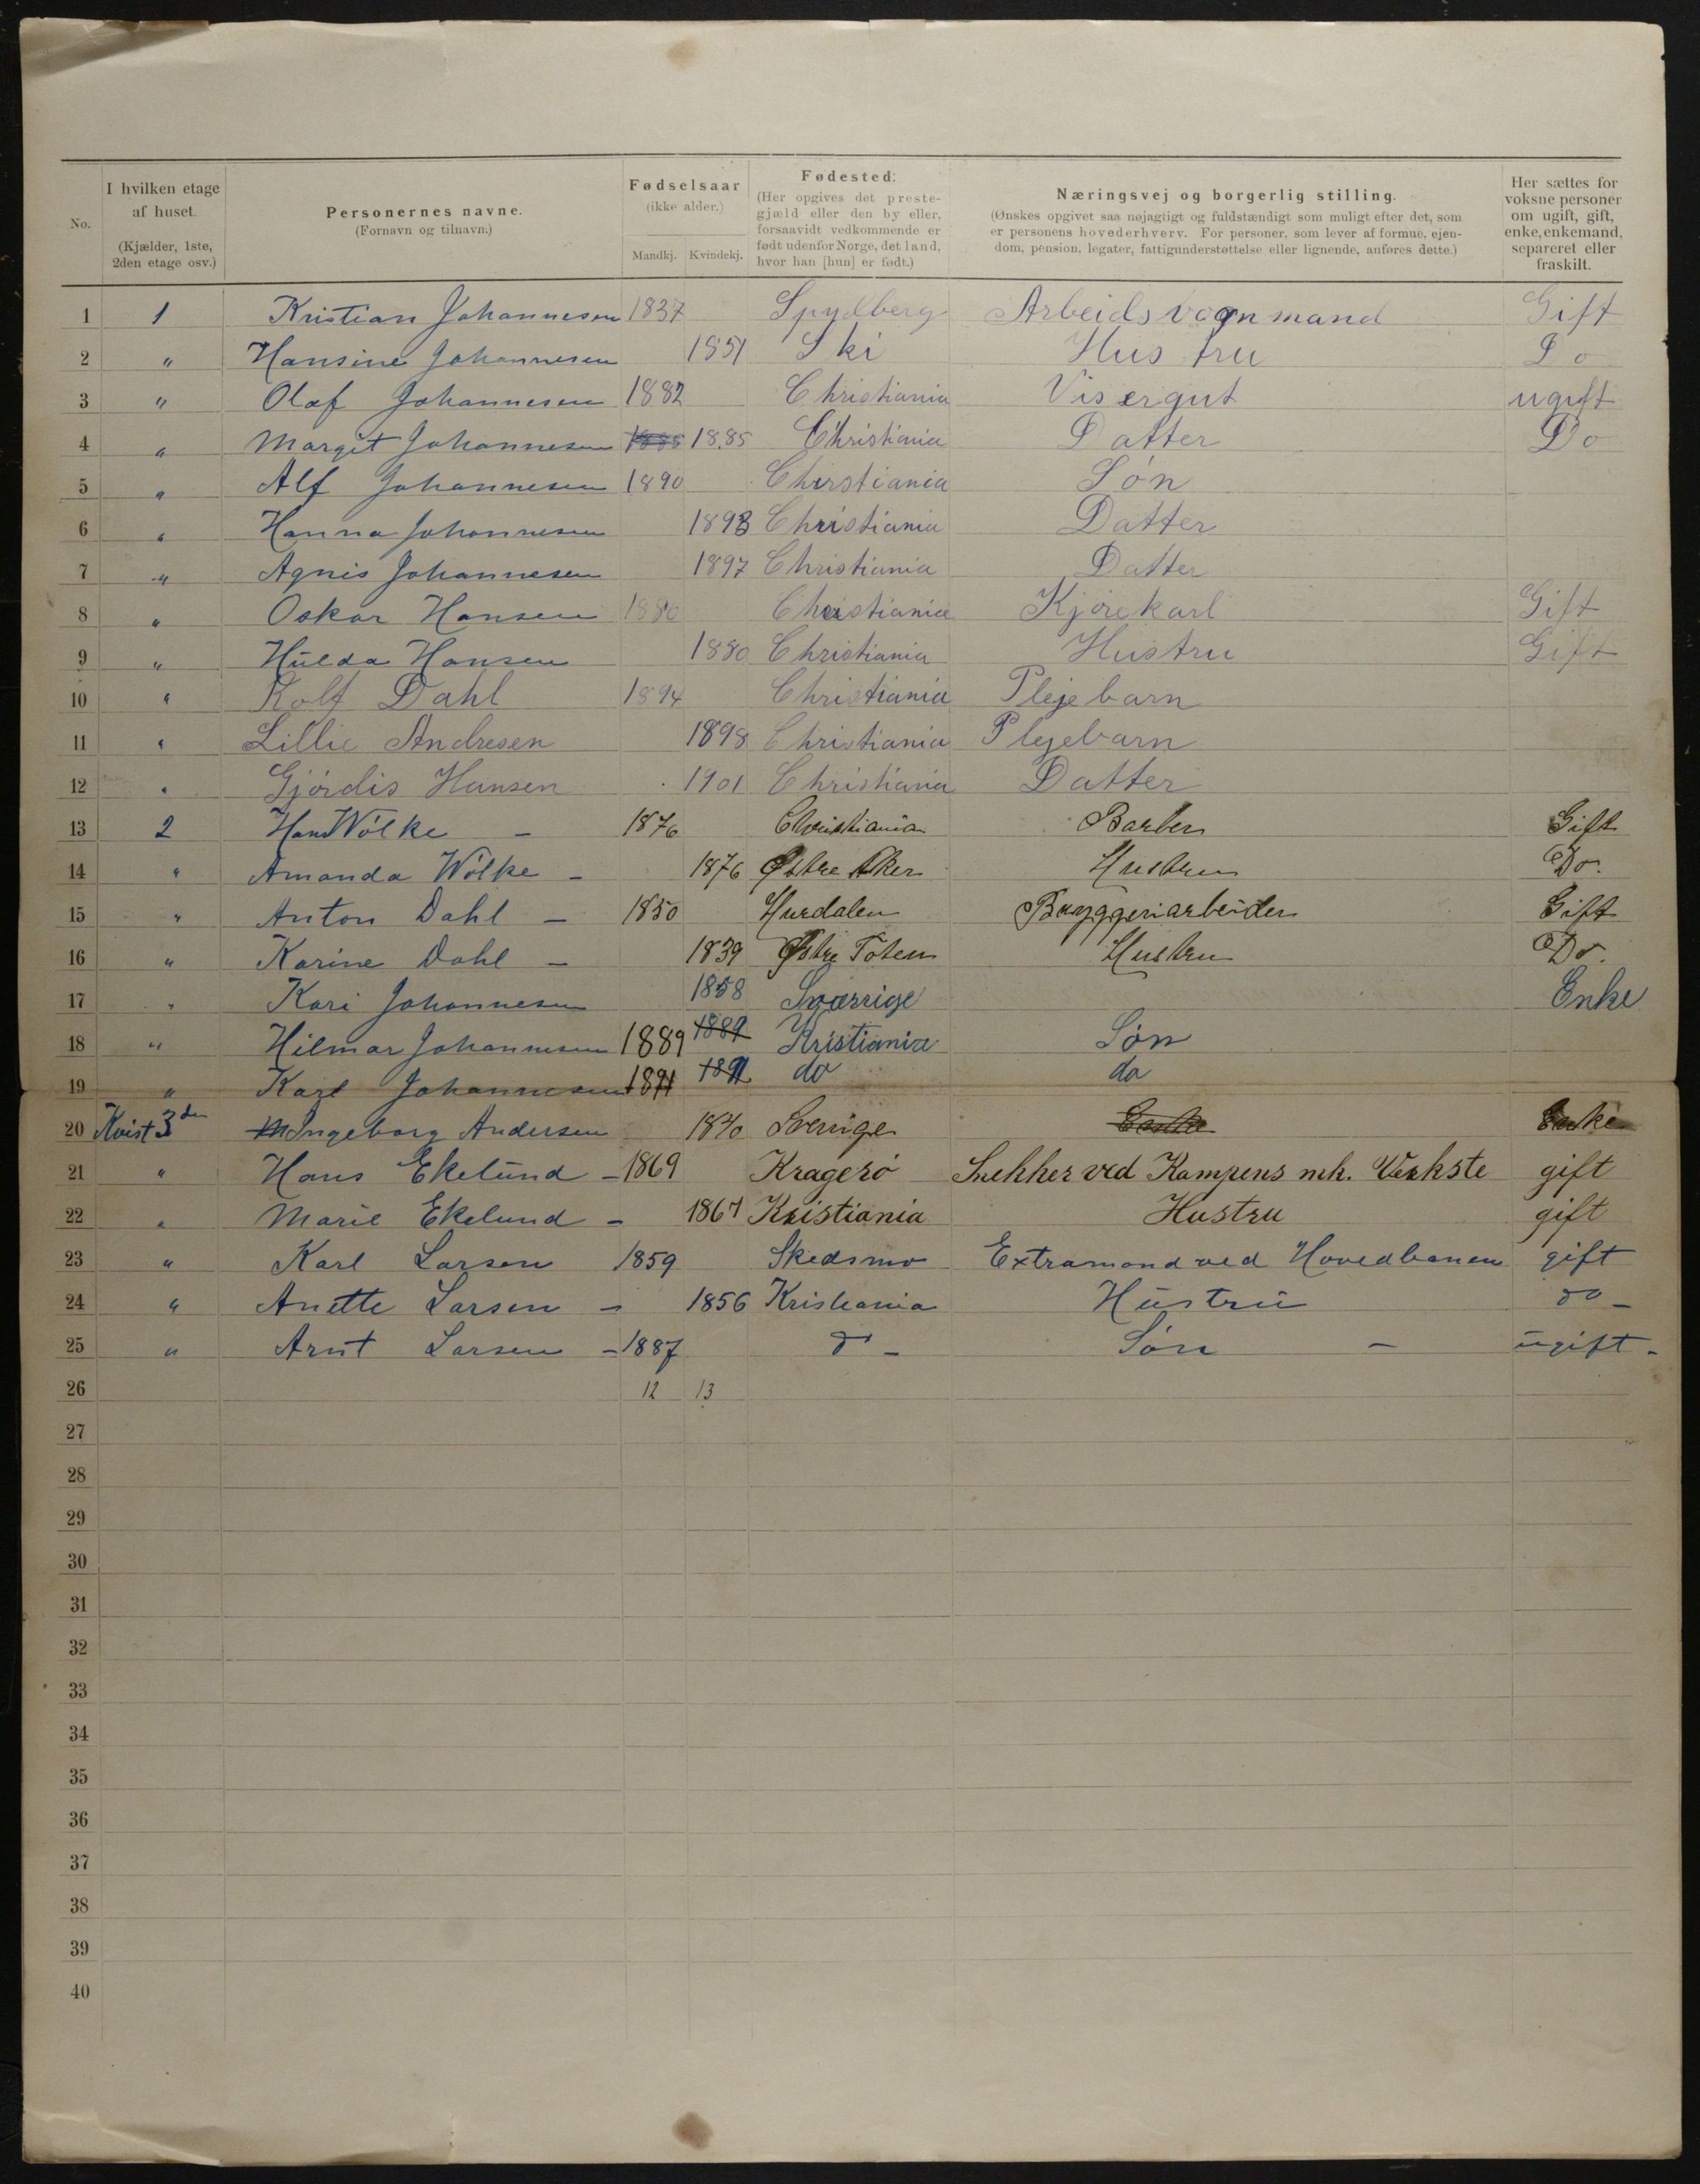 No.
I hvilken etage af huset. (Kjælder, 1ste, 2den etage osv.)
Personernes navne. (Fornavn og tilnavn.)
Fødselsaar (ikke alder.) Mandkj. Kvindekj.
Fødested: (Her opgives det prestegjæld eller den by eller, forsaavidt vedkommende er født udenfor Norge, det land, hvor han [hun] er født.)
Næringsvej og borgerlig stilling. (Ønskes opgivet saa nøjagtigt og fuldstændigt som muligt efter det, som er personens hovederhverv. For personer, som lever af formue, ejendom, pension, legater, fattigunderstøttelse eller lignende, anføres dette.)
Her sættes for voksne personer om ugift, gift, enke, enkemand, separeret eller fraskilt.
1 1 Kristian Johannesen 1837 Spydberg Arbeidsvognmand Gift
2 " Hansine Johannesen 1851 Ski Hustru Do
3 " Olaf Johannesen 1882 Christiania Visergut ugift
4 " Margit Johannesen 1885 1885 Christiania Datter Do
5 " Alf Johannesen 1890 Chirstiania Søn
6 " Hanna Johannesen 1893 Christiania Datter
7 " Agnis Johannesen 1897 Christiania Datter
8 " Oskar Hansen 1880 Christiania Kjørekarl Gift
9 " Hulda Hansen 1880 Christiania Hustru Gift
10 " Rolf Dahl 1894 Christiania Plejebarn
11 " Lillie Andresen 1898 Christiania Plejebarn
12 " Gjørdis Hansen 1901 Christiania Datter
13 2 Hans Wölke - 1876 Christiania Barber Gift
14 " Amanda Wölke - 1876 Østre Aker Hustru Do.
15 " Anton Dahl - 1850 Hurdalen Bryggeriarbeider Gift
16 " Karine Dahl - 1839 Østre Toten Hustru Do.
17 " Kari Johannesen 1858 Sværrige Enke
18 " Hilmar Johannesen 1889 1889 Kristiania Søn
19 " Karl Johannesen 1891 1891 do do
20 Kvist 3den Ingeborg Andersen 1840 Sverrige Enke Enke
21 " Hans Ekelund - 1869 Kragerö Snekker ved Kampens mk. Verkste gift
22 " Marie Ekelund - 1867 Kristiania Hustru gift
23 " Karl Larsen 1859 Skedsmo Extramand ved Hovedbanen gift
24 " Anette Larsen - 1856 Kristiania Hustru do -
25 " Arnt Larsen - 1887 do - Søn - ugift -
26 12 13
27
28
29
30
31
32
33
34
35
36
37
38
39
40